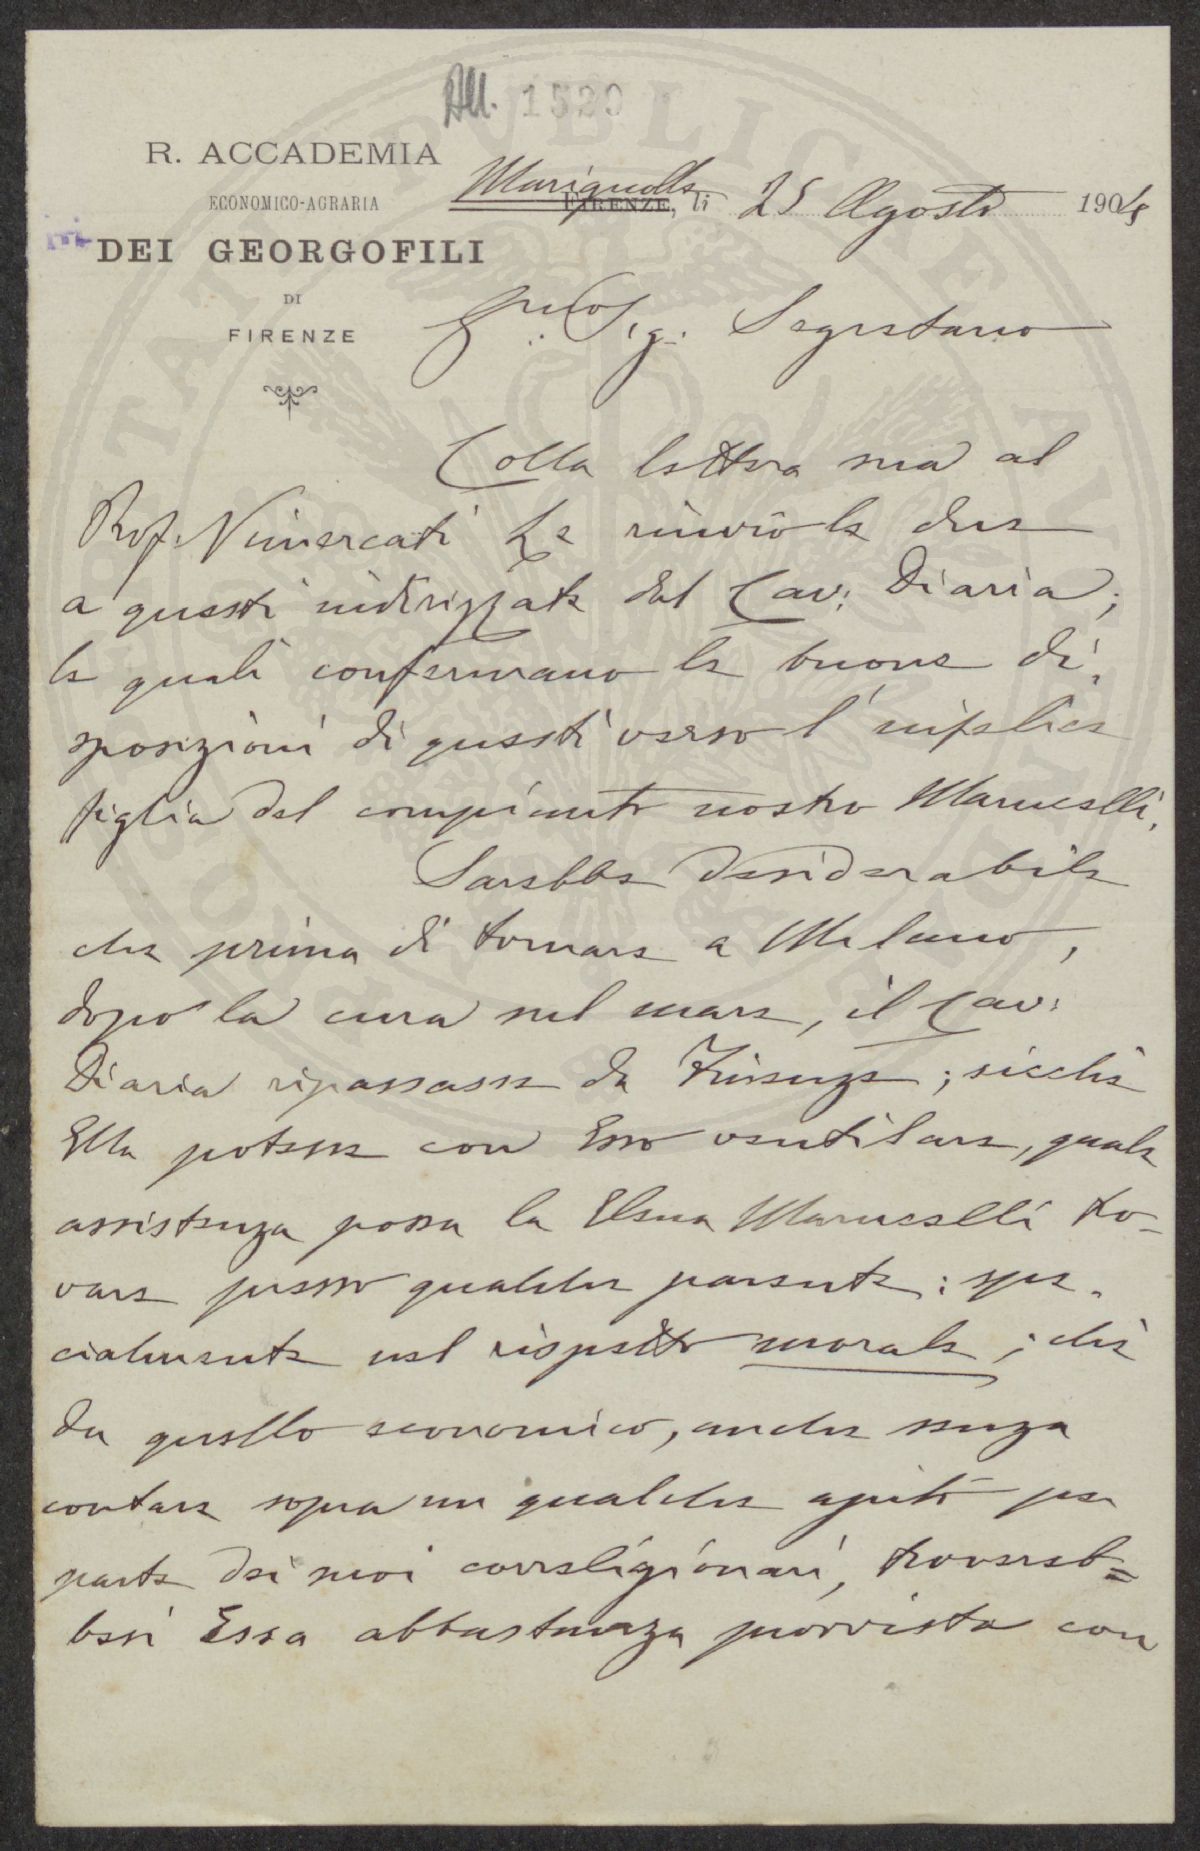 All. 1520
R. ACCADEMIA
ECONOMICO-AGRARIA
DEI GEORGOFILI
DI
FIRENZE
Marignolle FIRENZE, li 25 Agosto 1904
Sig. Segretario
Colla lettera mia al
Prof. Vimercati Le rinvio le due
a questi indirizzate dal Cav: Diaria;
le quali confermano le buone di-
sposizioni di questi verso l'infelice
figlia del compianto nostro Marucelli.
Sarebbe desiderabile
che prima di tornare a Milano,
dopo la cura nel mare, il Cav:
Diaria ripassasse da Firenze; sicchè
Ella potesse con Esso ventilare, quale
assistenza possa la Elena Marucelli tro-
vare presso qualche parente: spe-
cialmente nel rispetto morale; chè
da quello economico, anche senza
contare sopra un qualche ajuto per
parte dei suoi correligionari, trovereb=
besi Essa abbastanza provvista con